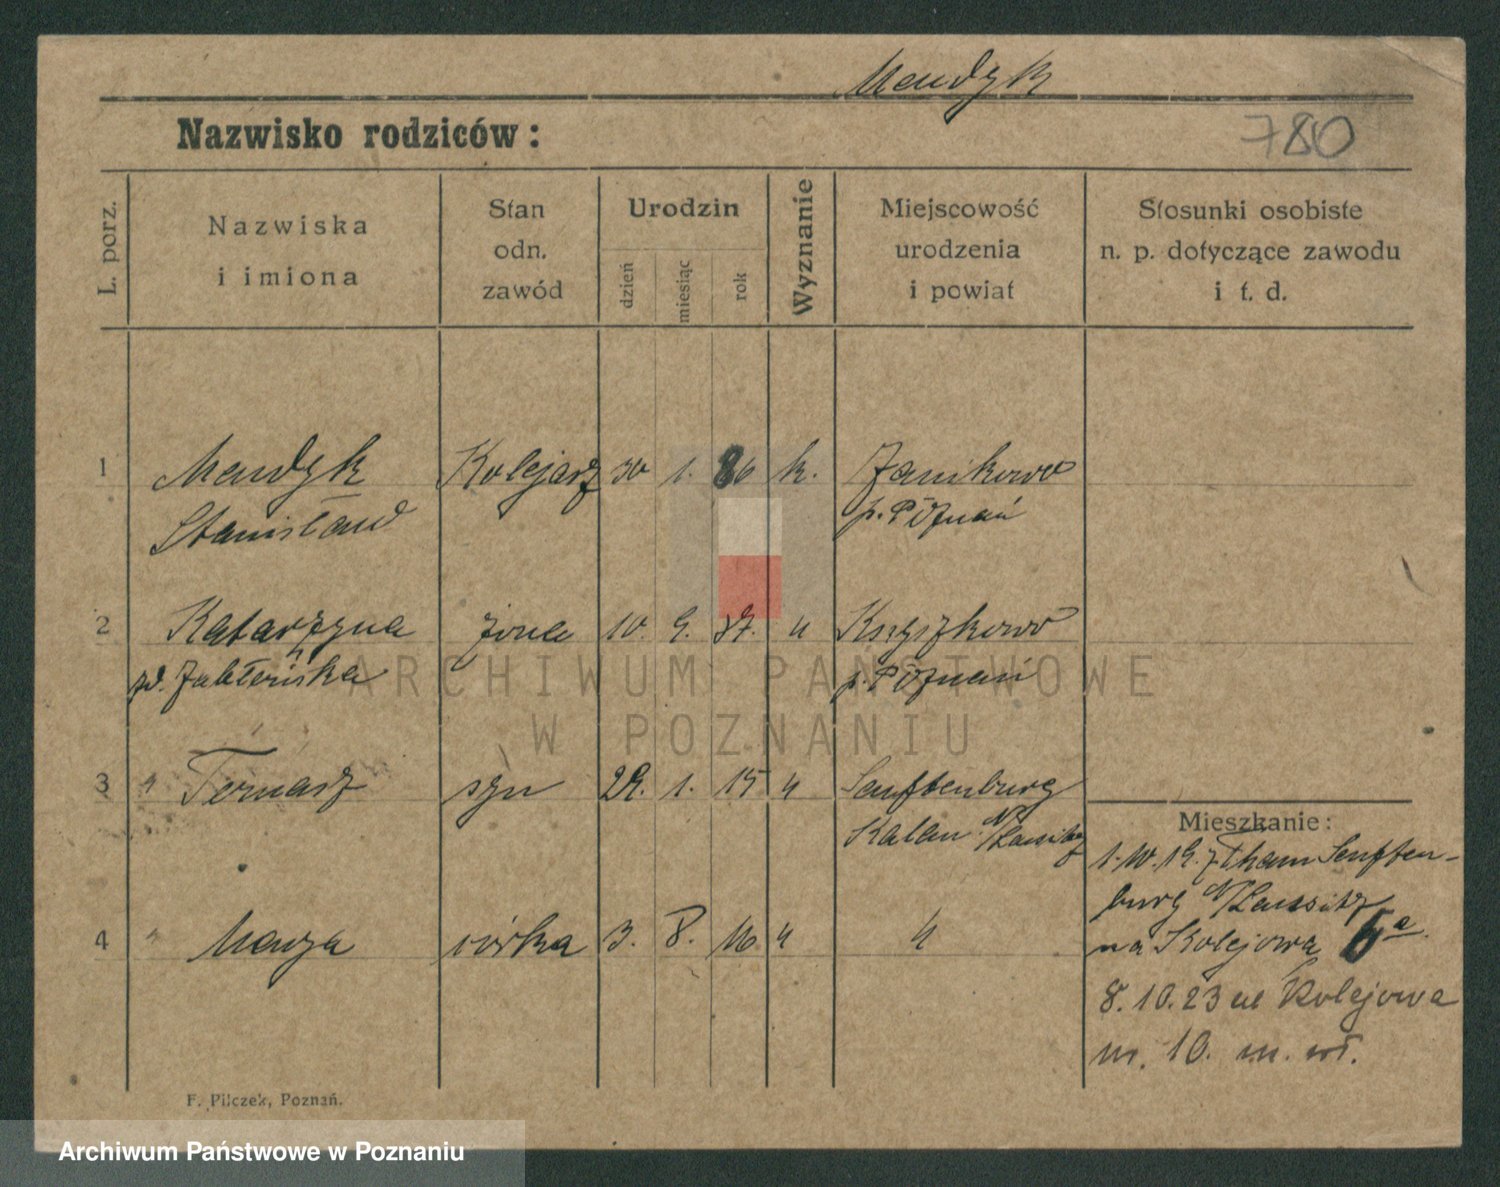 Mendyk
Nazwisko rodziców:
780
L. porz.
Nazwiska
i imiona
Stan
odn.
zawód
Urodzin
dzień
miesiąc
rok
Wyznanie
Miejscowość
urodzenia
i powiat
Stosunki osobiste
n. p. dotyczące zawodu
i t. d.
1 Mendyk Kolejarz 30 1. 86 k. Janikowo
Stanisław p. Poznań
2 Katarzyna żona 10. 9. 87. " Kszyszkowo
p. Poznań
3 " syn 29. 1. 15 " Senftenburg
Kalau N/Lausitz
4 " córka 3. 8. 16 " "
Mieszkanie:
1. 10. 19. z Senften-
burg N/Laussitz
na Kolejową 6a.
8. 10. 23 ul Kolejowa
nr. 10. m. wł.
F. Pilczek, Poznań.
ARCHIWUM PAŃSTWOWE
W POZNANIU
Archiwum Państwowe w Poznaniu